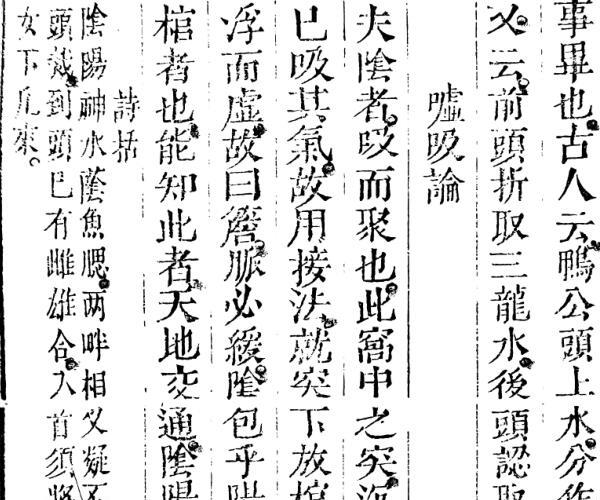 事畢也古人云鴨公頭上水分作
乂云前頭折取三龍水後頭認取
噓吸論
夫陰者吸而聚也此窩中之突沉
巳吸其氣故用接法就突下放棺
浮而虛故曰簷脈必緩陰包乎陽
棺者也能知此者天地交通陰陽
詩括
陰陽神水蔭魚腮两畔相乂疑不
頭戴到頭巳有雌雄合入首須將
女下凡來